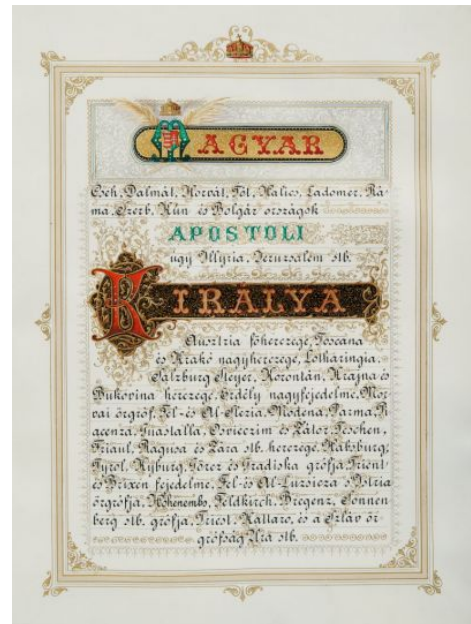 MAGYAR
Cseh, Dalmát, Horvát, Tót, Halics, Ladomer, Rá-
ma, Szerb, Kún és Bolgár országok
APOSTOLI
úgy Illyria, Jeruzsálem stb.
KIRÁLYA
Ausztria főherczege, Toscana
és Krakó nagyherczege, Lotharingia,
Salzburg Steyer, Korontán, Krajna és
Bukovina herczege, Erdély nagyfejedelme, Mor
vai őrgróf, Fel- és Al-Slezia, Modena, Parma, P
iacenza, Guastalla, Osvieczim és Zátor, Teschen,
Friaul, Ragusa és Zára stb. herczege, Habsburg,
Tyrol, Kyburg, Görcz és Gradiska grófja, Trient
és Brixen fejedelme, Fel- és Al-Luzsicza s Istria
őrgrófja, Hohenembs, Feldkirch, Bregenz, Sonnen
berg stb. grófja, Triest, Kattaro, és a Szláv őr
grófság Ura stb.